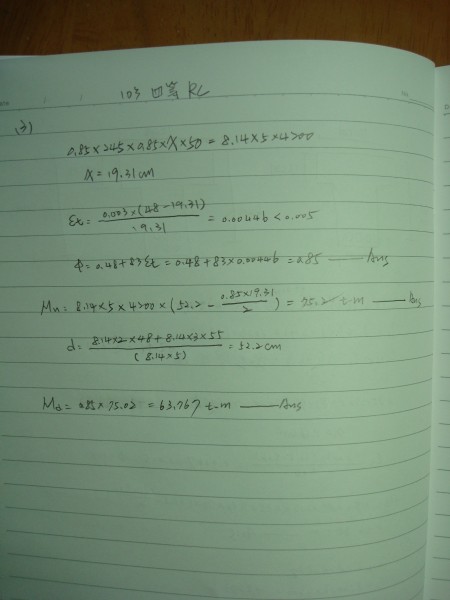 103 四等 RC
(3)
0.85×245×0.85×X×50=8.14×5×4200
X=19.31cm
εt= 0.003×(48-19.31) / 19.31 = 0.00446<0.005
φ=0.48+83εt=0.48+83×0.00446=0.85 — Ans
Mn=8.14×5×4200×(52.2- 0.85×19.31 / 2 )= t-m — Ans
d= 8.14×2×48+8.14×3×55 / (8.14×5) =52.2cm
Md=0.85×75.02=63.767 t-m — Ans